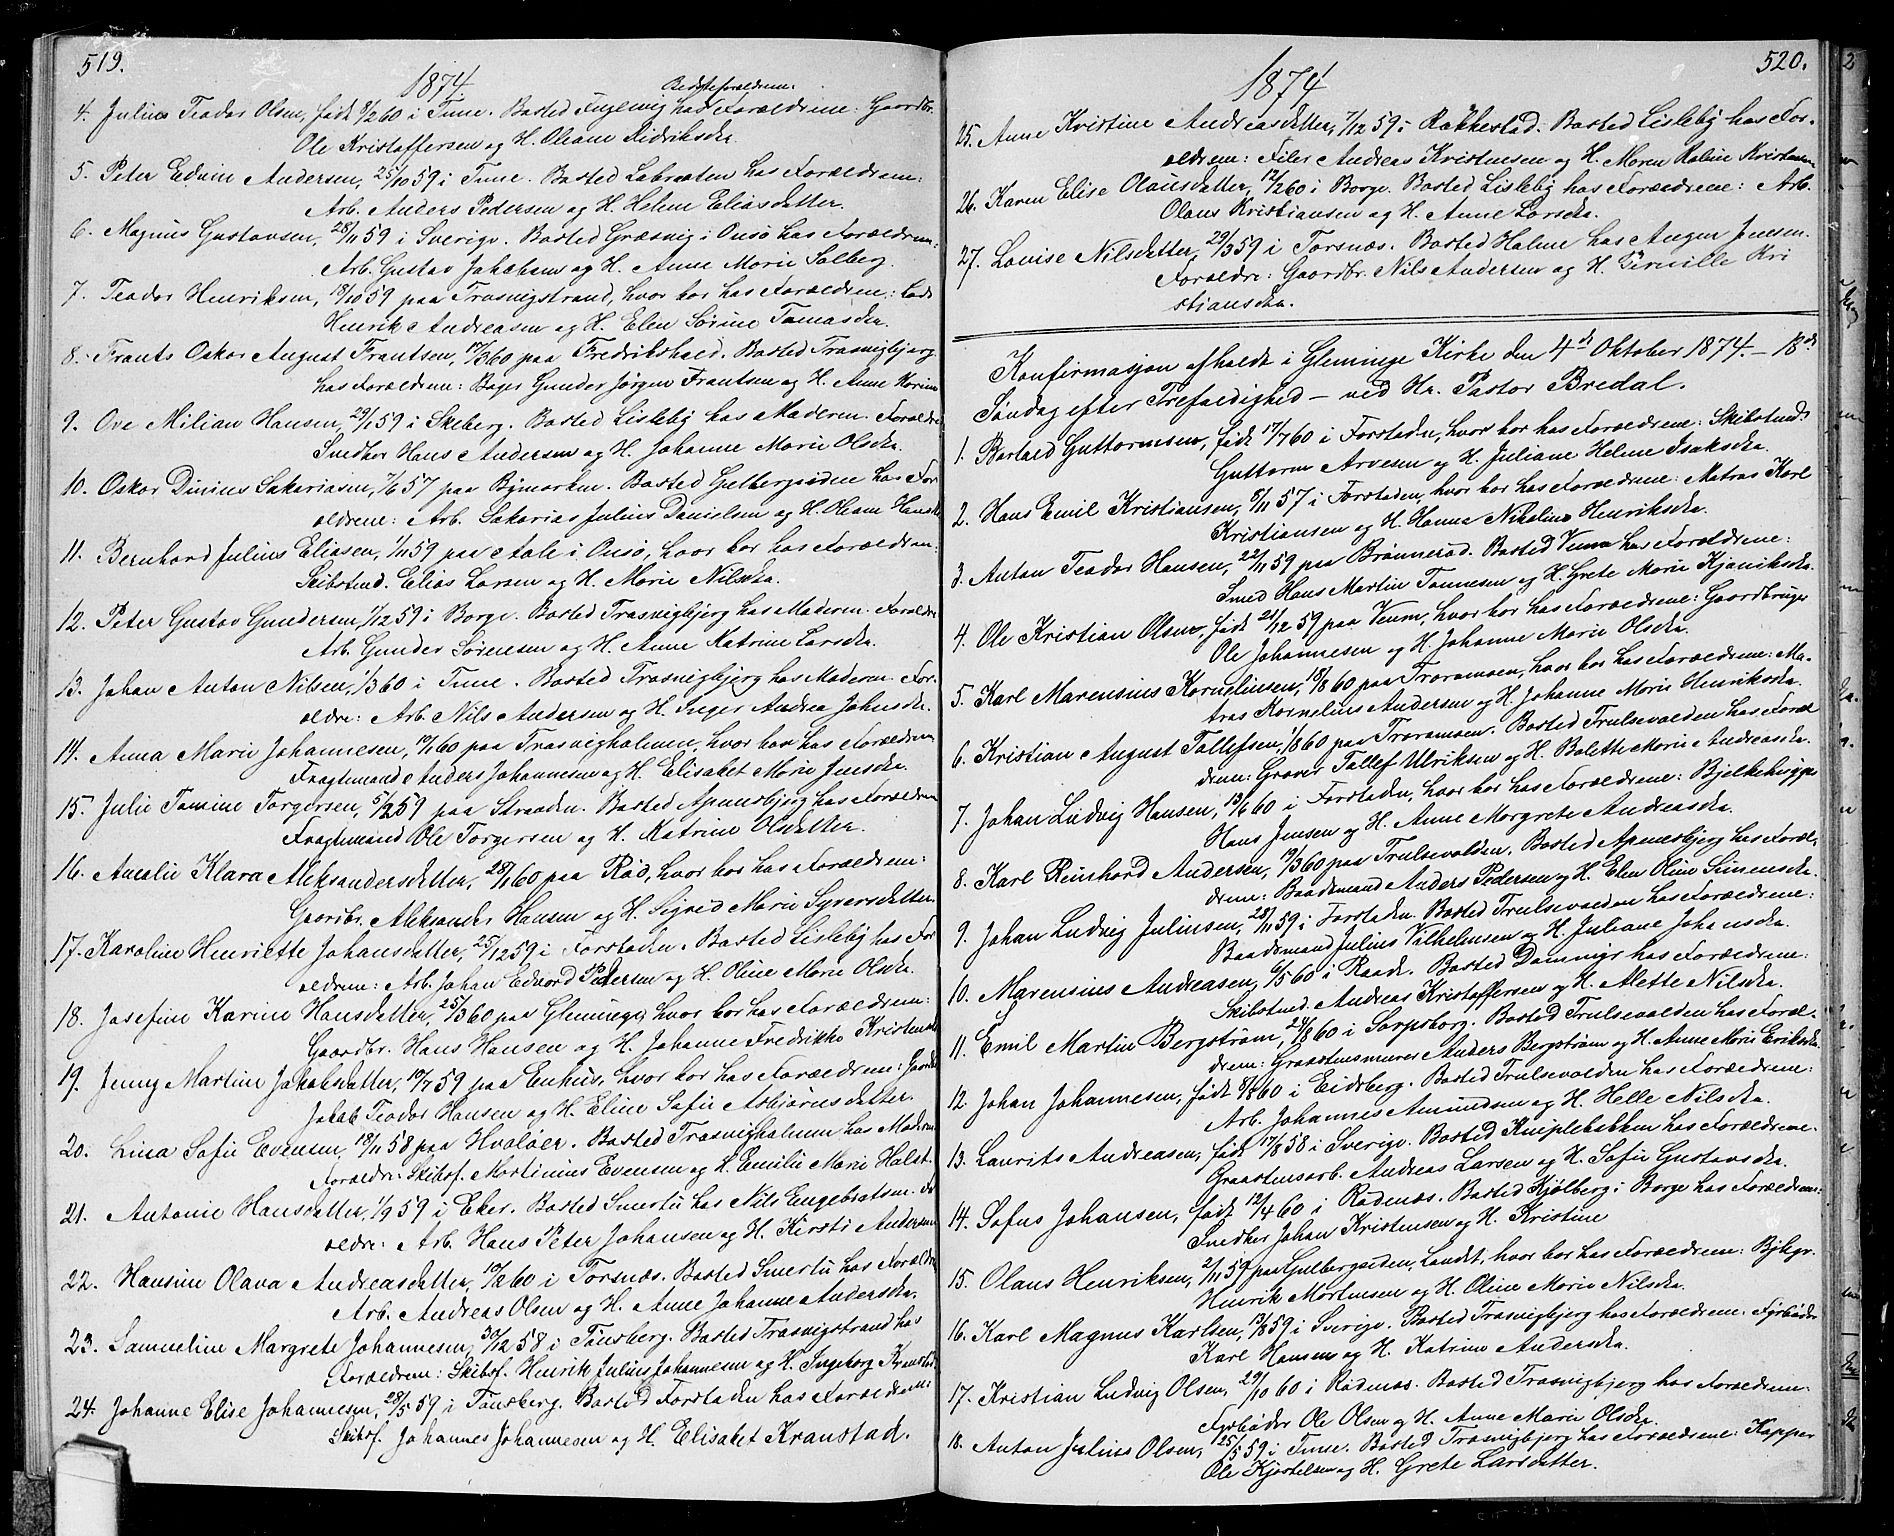 519.
1874
Bedsteforældrene.
4. Julius Teodor Olsen, født 8/2 60 i Tune. Bosted Fuglevig hos Forældrene: Gaardbr.
Ole Kristoffersen og H. Oleane Didriksdtr.
5. Peter Edvin Andersen, 25/10 59 i Tune. Bosted Labraaten hos Forældrene:
Arb. Anders Pedersen og H. Helene Eliasdatter.
6. Magnus Gustavsen, 28/11 59 i Sverige. Bosted Græsvig i Onsø hos Forældrene:
Arb. Gustav Jakobsen og H. Anne Marie Solberg.
7. Teodor Henriksen, 18/10 59 paa Trosvigstrand, hvor bor hos Forældrene:
Henrik Andreasen og H. Elen Sørine Tomasdtr.
8. Frants Oskar August Frantsen, 17/3 60 paa Fredrikshald. Bosted Trosvigbjerg
hos Forældrene: Bager Gunder Jørgen Frantsen og H. Anne Karine
9. Ove Milian Hansen, 29/1 59 i Skeberg. Bosted Lisleby hos Moderen. Forældre
Snedker Hans Andersen og H. Johanne Marie Olsdtr.
10. Oskar Dinius Sakariasen, 7/6 57 paa Bymarken. Bosted Gulbergsiden hos For
ældrene: Arb. Sakarias Julius Danielsen og H. Oleane Hansdtr
11. Bernhard Julius Eliasen, 1/11 59 paa Aale i Onsø, hvor bor hos Forældrene:
Skibstmd. Elias Larsen og H. Marie Nilsdtr.
12. Peter Gustav Gundersen, 1/12 59 i Borge. Bosted Trosvigbjerg hos Moderen. Forældre
Arb. Gunder Sørensen og H. Anne Katrine Larsdtr.
13. Johan Anton Nilsen, 1/3 60 i Tune. Bosted Trosvigbjerg hos Moderen. For-
ældre: Arb. Nils Andersen og H. Inger Andrea Johnsdtr.
14. Anna Marie Johannesen, 19/1 60 paa Trosvigholmen, hvor bor hos Forældrene
Fragtemand Anders Johannesen og H. Elisabet Marie Jensdtr.
15. Julie Tomine Torgersen, 5/2 59 paa Stranden. Bosted Apenesbjerg hos Forældrene
Fragtemand Ole Torgersen og H. Katrine Olsdatter.
16. Amalie Klara Aleksandersdatter, 28/1 60 paa Rød, hvor bor hos Forældrene:
Gaardbr. Aleksander Hansen og H. Sigrid Marie Syversdatter.
17. Karoline Henriette Johansdatter, 25/12 59 i Forstaden. Bosted Lisleby hos For
ældrene: Arb. Johan Edvard Pedersen og H. Oline Marie Olsdtr.
18. Josefine Karine Hansdatter, 25/3 60 paa Glemminge, hvor bor hos Forældrene:
Gaardbr. Hans Hansen og H. Johanne Fredrikke Kristensdtr
19. Jenny Martine Jakobsdatter, 19/7 59 paa Enhus, hvor bor hos Forældrene: Gaardbr
Jakob Teodor Hansen og H. Eline Sofie Asbjørnsdatter.
20. Lina Sofie Evensen, 18/11 58 paa Hvaløer. Bosted Trosvigholmen hos Moderen
Forældre: Skibsf. Martinius Evensen og H. Emilie Marie Holst.
21. Antonie Hansdatter, 1/9 59 i Eker. Bosted Smertu hos Nils Engebretsen. For
ældre: Arb. Hans Peter Johansen og H. Kirsti Andersen
22. Hansine Olava Andreasdatter, 10/2 60 i Torsnæs. Bosted Smertu hos Forældre
Arb. Andreas Olsen og H. Anne Johanne Andersdtr.
23. Samueline Margrete Johannesen, 30/12 58 i Tønsberg. Bosted Trosvigstrand hos
Forældrene: Skibsf. Henrik Julius Johannesen og H. Ingeborg Kranstad.
24. Johanne Elise Johannesen, 28/5 59 i Tønsberg. Bosted Forstaden hos Forældrene:
Skibsf. Johannes Johannesen og H. Elisabet Kranstad.
520.
1874
25. Anne Kristine Andreasdatter, 7/12 59 i Rakkestad. Bosted Lisleby hos For-
ældrene: Filer Andreas Kristensen og H. Maren Kaline Kristiansen
26. Karen Elise Olausdatter, 12/2 60 i Borge. Bosted Lisleby hos Forældrene: Arb.
Olaus Kristiansen og H. Anne Larsdtr.
27. Lovise Nilsdatter, 29/3 59 i Torsnæs. Bosted Holme hos August Jensen.
Forældre: Gaardbr. Nils Andersen og H. Pernille Kri
stiansdtr.
Konfirmasjon afholdt i Glemminge Kirke den 4de Oktober 1874. – 18de
Søndag efter Trefoldighed – ved Hr. Pastor Bredal.
1. Bertard Guttormsen, født 17/7 60 i Forstaden, hvor bor hos Forældrene: Skibstmd.
Guttorm Arvesen og H. Juliane Helene Isaksdtr.
2. Hans Emil Kristiansen, 5/11 57 i Forstaden, hvor bor hos Forældrene: Matros Karl
Kristiansen og H. Hanna Nikoline Henriksdtr.
3. Anton Teodor Hansen, 22/11 59 paa Brønnerød. Bosted Veum hos Forældrene:
Smed Hans Martin Tønnesen og H. Grete Marie Kjøniksdtr.
4. Ole Kristian Olsen, født 21/12 59 paa Veum, hvor bor hos Forældrene: Gaardbruger
Ole Johannesen og H. Johanne Marie Olsdtr.
5. Karl Marensius Kornelinsen, 19/8 60 paa Traramoen, hvor bor hos Forældrene: Ma-
tros Kornelius Andersen og H. Johanne Marie Henriksdtr.
6. Kristian August Tollefsen, 1/8 60 paa Traramoen. Bosted Trulsevolden hos Foræl
drene: Graver Tollef Ulriksen og H. Bolette Marie Andreasdtr.
7. Johan Ludvig Hansen, 13/6 60 i Forstaden, hvor bor hos Forældrene: Bjelkehugger
Hans Jensen og H. Anne Margrete Andreasdtr.
8. Karl Reinhard Andersen, 19/3 60 paa Trulsevolden. Bosted Apenesbjerg hos Foræl,
drene: Baadsmand Anders Pedersen og H. Elen Oline Simensdtr.
9. Johan Ludvig Julinsen, 28/11 59 i Forstaden. Bosted Trulsevolden hos Forældrene:
Baadsmand Julius Vilhelmsen og H. Juliane Johansdtr.
10. Marensius Andreasen, 6/5 60 i Raade. Bosted Damnigs hos Forældrene:
Skibstmd Andreas Kristoffersen og H. Alette Nilsdtr.
11. Emil Martin Bergstrøm, 24/8 60 i Sarpsborg. Bosted Trulsevolden hos Foræl-
drene: Graastensmurer Anders Bergstrøm og H. Anne Marie Eriksdtr.
12. Johan Johannesen, født 8/8 60 i Eidsberg. Bosted Trulsevolden hos Forældrene:
Arb. Johannes Amundsen og H. Helle Nilsdtr.
13. Laurits Andreasen, født 17/8 58 i Sverige. Bosted Kniplebakken hos Forældrene.
Graastensarb. Andreas Larsen og H. Sofie Gustavsdtr.
14. Sofus Johansen, født 12/4 60 i Rødenæs. Bosted Kjølberg i Borge hos Forældrene:
Snedker Johan Kristensen og H. Kristine
15. Olaus Henriksen, 2/11 59 paa Gulbergsiden, Landet, hvor bor hos Forældrene: Bjhgr.
Henrik Mortensen og H. Oline Marie Nilsdtr.
16. Karl Magnus Karlsen, 13/8 59 i Sverige. Bosted Trosvigbjerg hos Forældrene: Fyrbøder
Karl Hansen og H. Katrine Andersdtr.
17. Kristian Ludvig Olsen, 29/10 60 i Rødenæs. Bosted Trosvigbjerg hos Forældrene:
Fyrbøder Ole Olsen og H. Anne Marie Olsdtr.
18. Anton Julius Olsen, 25/5 59 i Tune. Bosted Trosvigbjerg hos Forældrene: Kapper
Ole Kjostelsen og H. Grete Larsdatter.